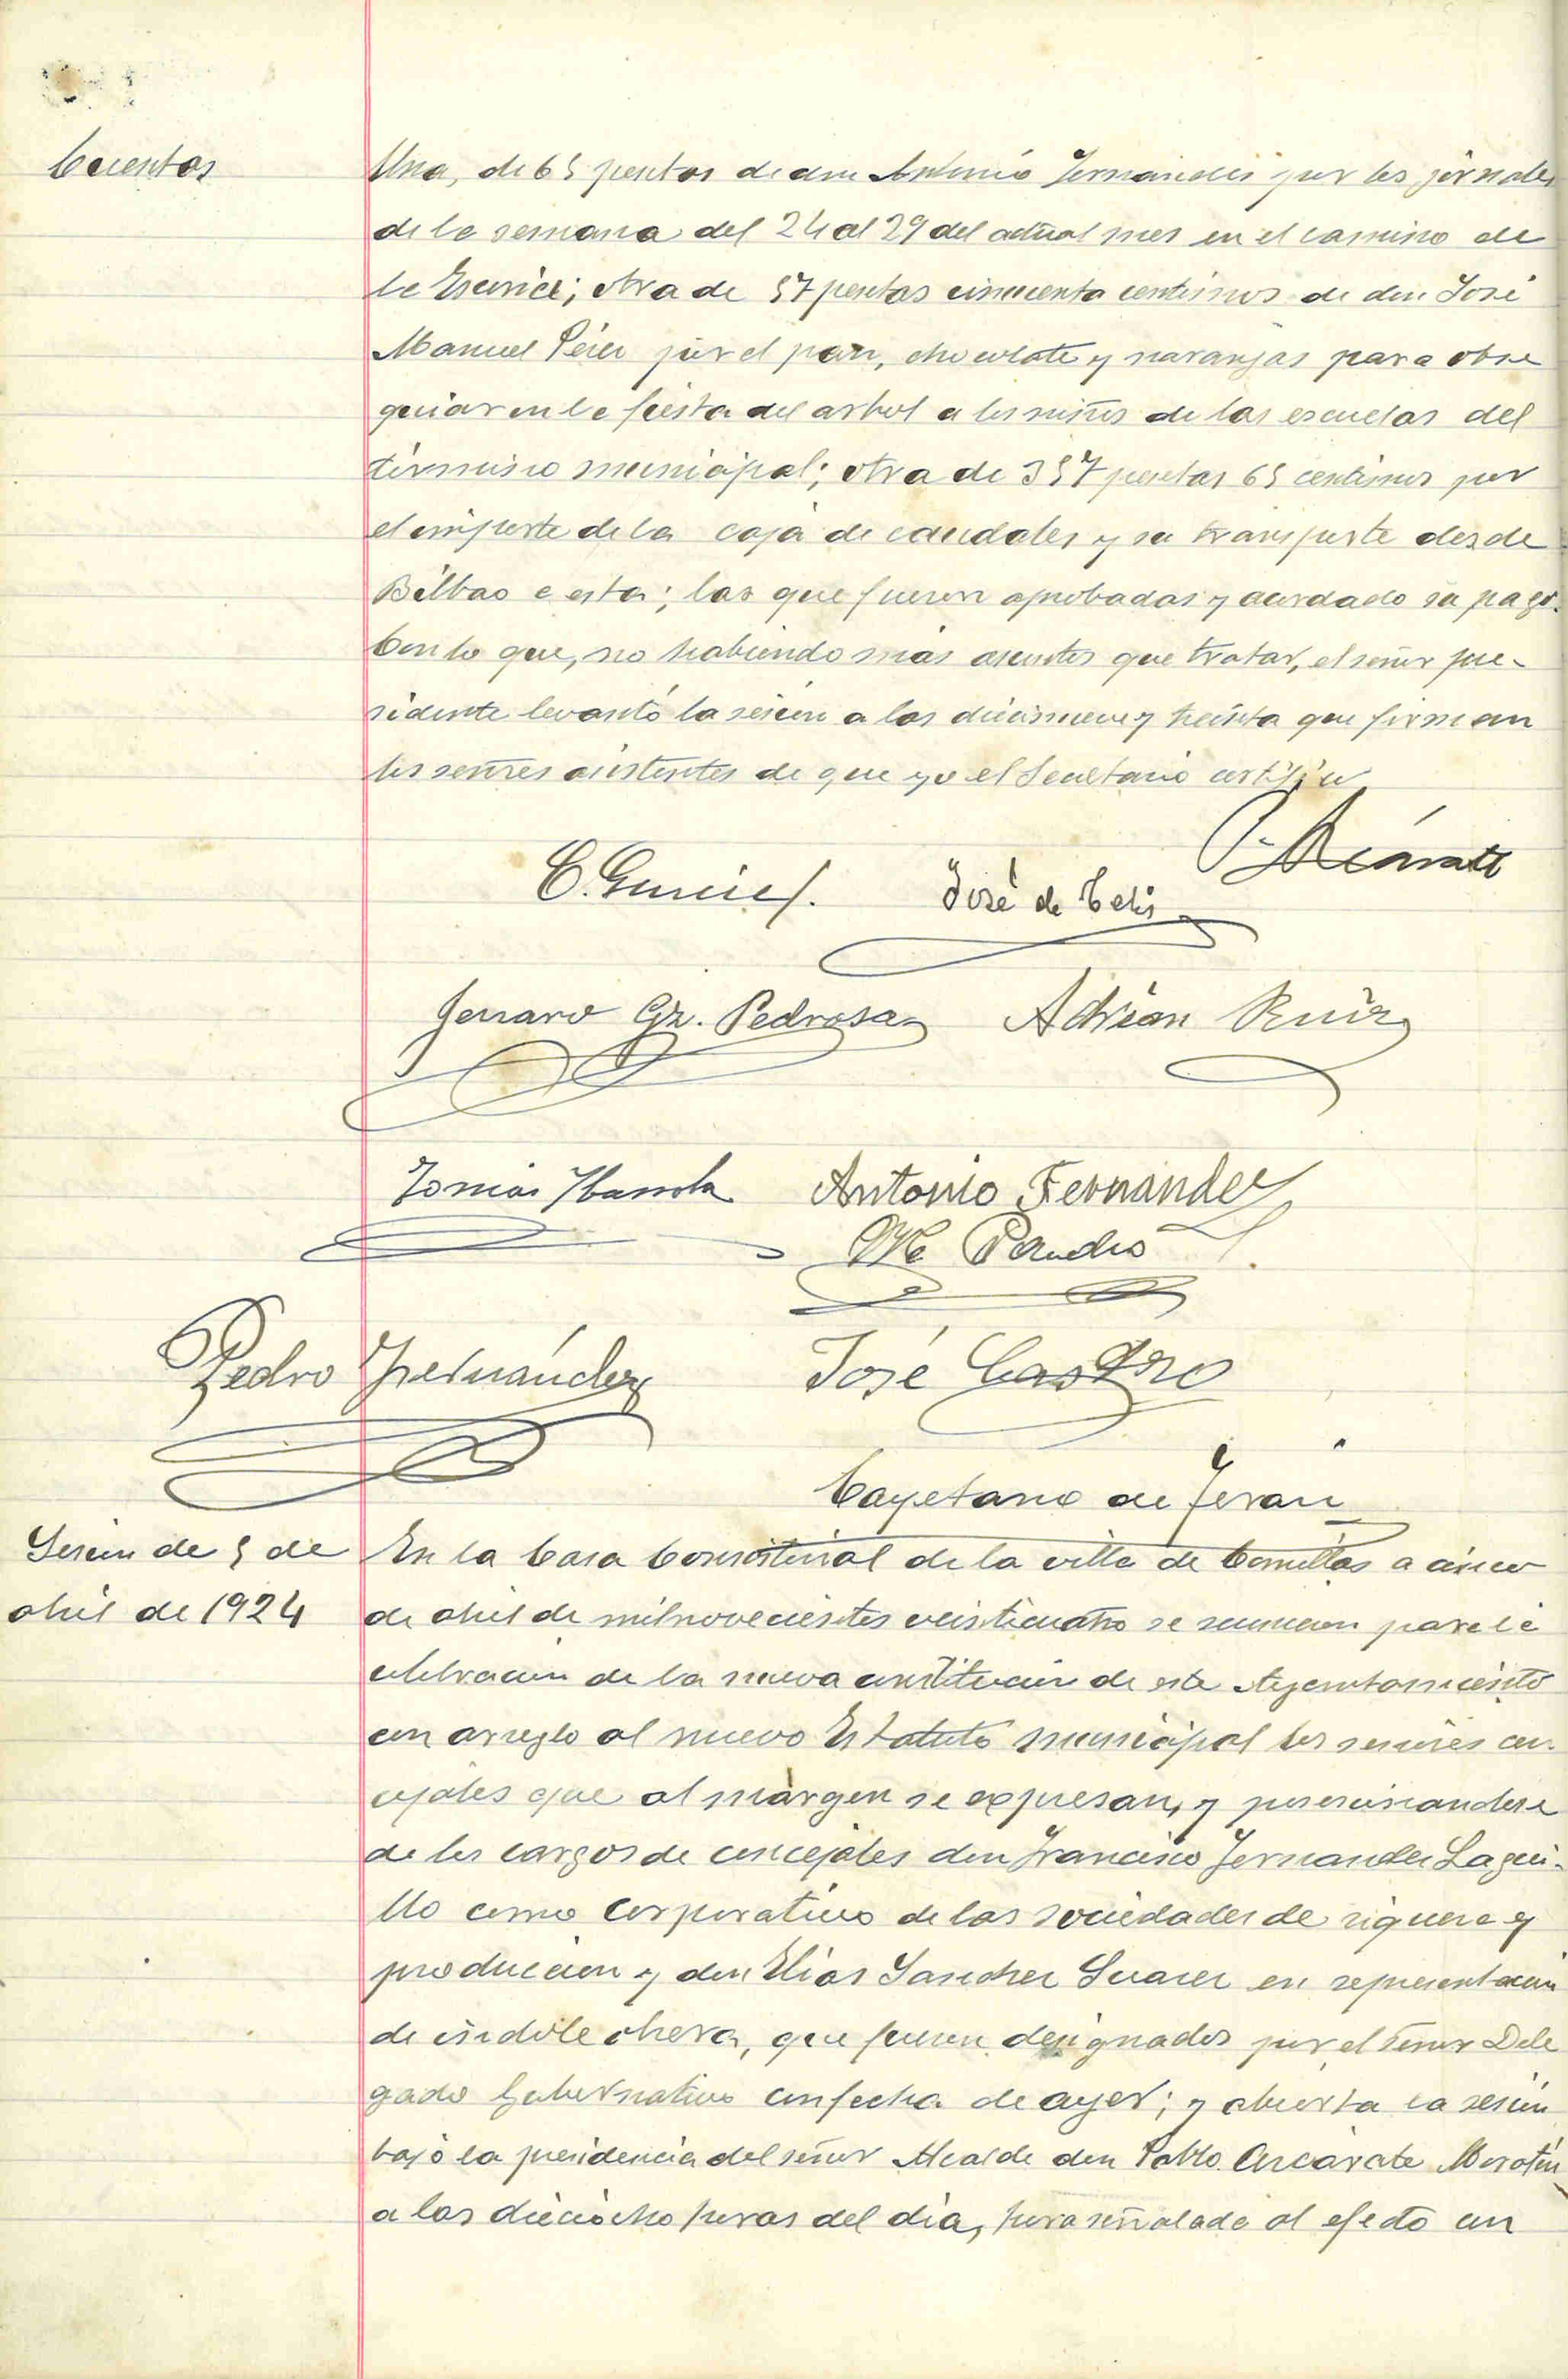 Cuentas
Una, de 65 pesetas de don Antonio Fernandez por los jornales
de la semana del 24 al 29 del actual mes en el camino de
la ; otra de 57 pesetas cincuenta centimos de don José
Manuel Pérez por el pan, chocolate y naranjas para obse
quiar en la fiesta del arbol a los niños de las escuelas del
término municipal; otra de 357 pesetas 65 centimos por
el importe de la caja de caudales y su transporte desde
Bilbao a esta; las que fueron aprobadas y acordado su pago.
Con lo que, no habiendo mas asuntos que tratar, el señor pre-
sidente levantó la sesion a las diecinueve y treinta que firman
los señores asistentes de que yo el Secretario certifico
José de Celis
Genaro Gz. Pedrosa Adrian Ruiz
Tomas Antonio Fernández
Pedro Fernández José Castro
Cayetano de Teran
Sesion de 5 de
abril de 1924
En la Casa Consistorial de la villa de Comillas a cinco
de abril de mil novecientos veinticuatro se reunieron para la
celebracion de la nueva constitucion de este Ayuntamiento
con arreglo al nuevo Estatuto municipal los señores con
cejales que al márgen se expresan, y posesionandose
de los cargos de concejales don Francisco Fernandez Lagui-
llo como corporativo de las sociedades de riqueza y
produccion y don Elias Sanchez Suarez en representacion
de indole obrera, que fueron designados por el señor Dele
gado Gubernativo con fecha de ayer; y abierta la sesion
bajo la presidencia del señor Alcalde don Pablo Arcarate Moratin
a las dieciocho horas del dia, hora señalada al efecto con